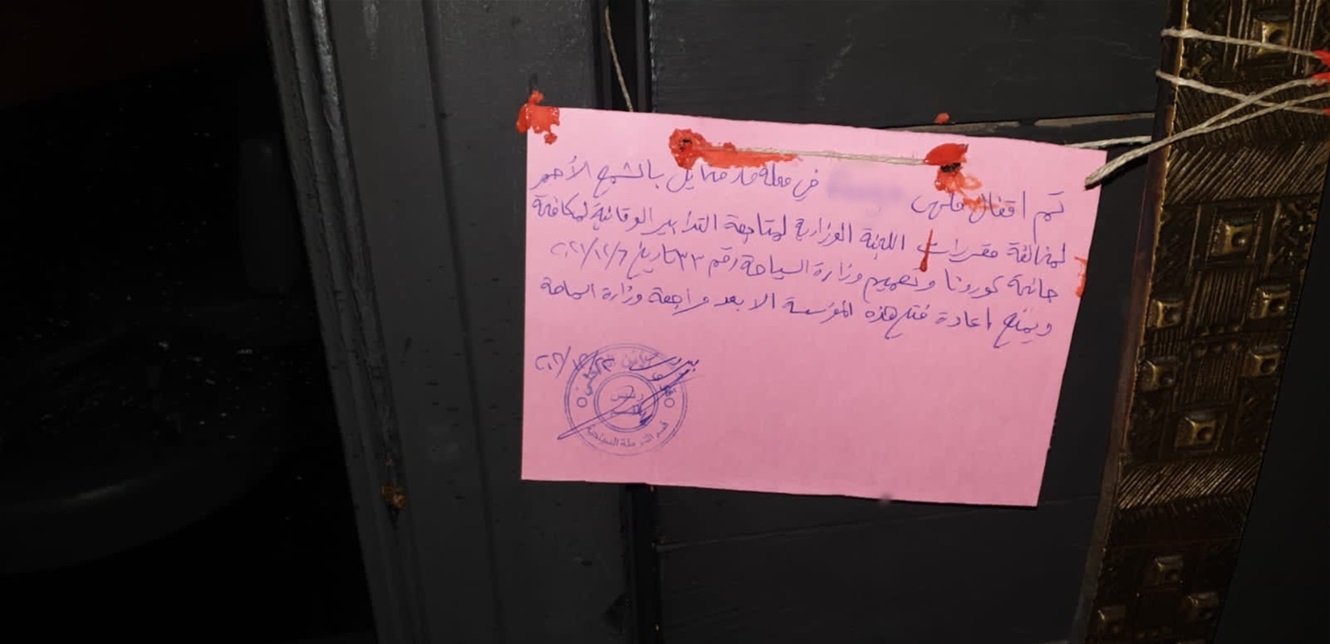 تم اقفال ملهى في محلة مار مخايل بالشمع الأحمر
لمخالفة مقررات اللجنة الوزارية لمتابعة التدابير الوقائية لمكافحة
جائحة كورونا وتعميم وزارة السياحة رقم ٣٣ تاريخ ٢٠٢١/١٢/٦
ويمنع اعادة فتح هذه المؤسسة الا بعد مراجعة وزارة السياحة
بيروت